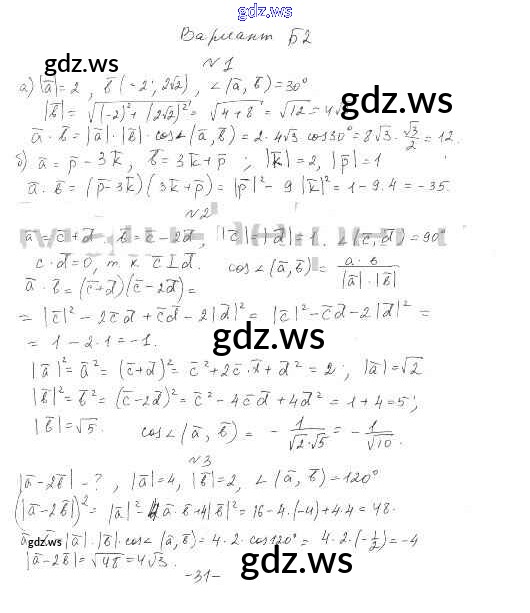 gdz.ws
Вариант Б2
gdz.ws
№1
а) |a̅| = 2, b̅(-2; 2√2), ∠(a̅, b̅) = 30°
|b̅| = √((-2)² + (2√2)²) = √(4+8) = √12 =
gdz.ws
a̅ · b̅ = |a̅| · |b̅| · cos∠(a̅, b̅) = 2 · 4√3 · cos30° = 8√3 · √3/2 = 12.
б) a̅ = p̅ - 3k̅, b̅ = 3k̅ + p̅; |k̅| = 2, |p̅| = 1
a̅ · b̅ = (p̅ - 3k̅)(3k̅ + p̅) = |p̅|² - 9|k̅|² = 1 - 9·4 = -35.
№2
a̅ = c̅ + d̅ b̅ = c̅ - 2d̅, |c̅| = |d̅| = 1. ∠(c̅, d̅) = 90°
c · d̅ = 0, т.к c̅ ⊥ d̅. cos∠(a̅, b̅) = a·b / |a̅|·|b̅|
a̅ · b̅ = (c̅ + d̅)(c̅ - 2d̅) =
= |c̅|² - 2c̅d̅ + c̅d̅ - 2|d̅|² = |c̅|² - c̅d̅ - 2|d̅|² =
= 1 - 2·1 = -1.
gdz.ws
|a̅|² = a̅² = (c̅ + d̅)² = c̅² + 2c̅·d̅ + d̅² = 2; |a̅| = √2
|b̅|² = b̅² = (c̅ - 2d̅)² = c̅² - 4c̅d̅ + 4d̅² = 1 + 4 = 5;
|b̅| = √5. cos∠(a̅, b̅) = - 1/(√2·√5) = - 1/√10.
№3
|a̅ - 2b̅| - ?, |a̅| = 4, |b̅| = 2, ∠(a̅, b̅) = 120°
(|a̅ - 2b̅|)² = |a̅|² - 4a̅·b̅ + 4|b̅|² = 16 - 4·(-4) + 4·4 = 48.
|a̅| · |b̅| · cos∠(a̅, b̅) = 4 · 2 · cos120° = 4·2·(-1/2) = -4
gdz.ws
|a̅ - 2b̅| = √48 = 4√3.
gdz.ws
-31-